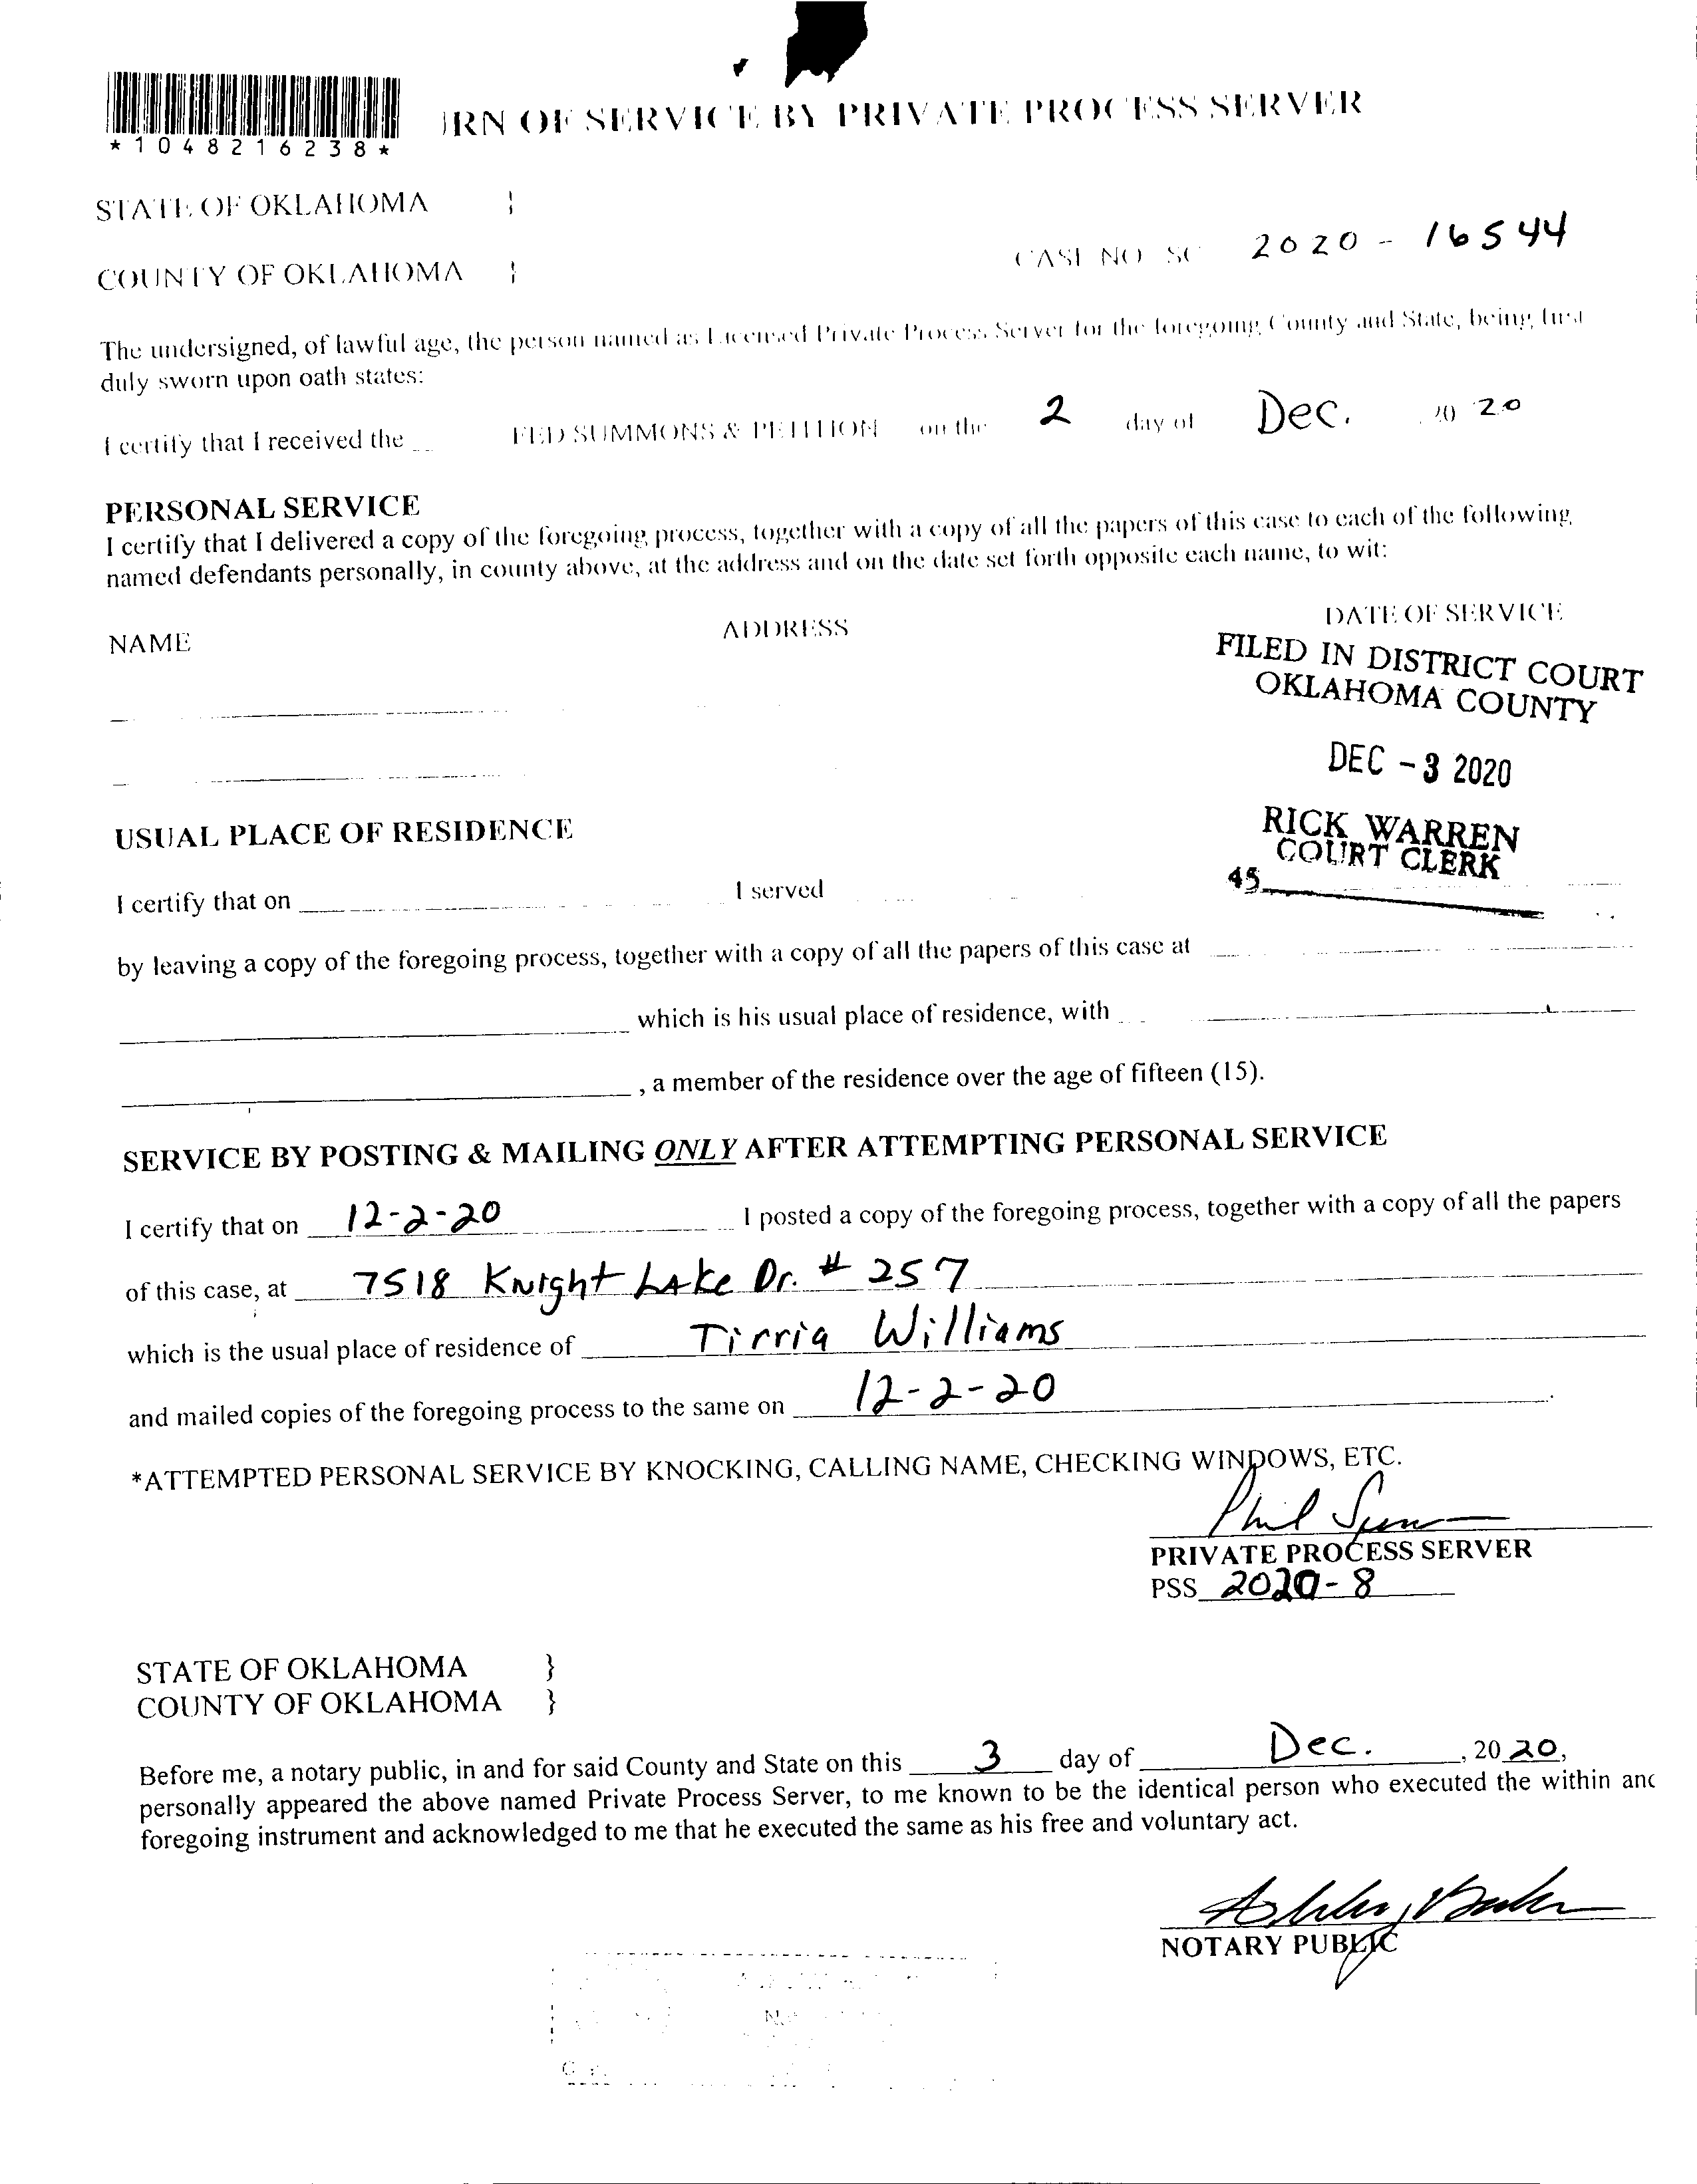 *1048216238*
RN OF SERVICE BY PRIVATE PROCESS SERVER
STATE OF OKLAHOMA }
CASE NO SC 2020 - 16544
COUNTY OF OKLAHOMA }
The undersigned, of lawful age, the person named as Licensed Private Process Server for the foregoing County and State, being first
duly sworn upon oath states:
I certify that I received the FED SUMMONS & PETITION on the 2 day of Dec. 20 20
PERSONAL SERVICE
I certify that I delivered a copy of the foregoing process, together with a copy of all the papers of this case to each of the following
named defendants personally, in county above, at the address and on the date set forth opposite each name, to wit:
NAME ADDRESS DATE OF SERVICE
FILED IN DISTRICT COURT
OKLAHOMA COUNTY
DEC - 3 2020
RICK WARREN
COURT CLERK
45
USUAL PLACE OF RESIDENCE
I certify that on I served
by leaving a copy of the foregoing process, together with a copy of all the papers of this case at
which is his usual place of residence, with
, a member of the residence over the age of fifteen (15).
SERVICE BY POSTING & MAILING ONLY AFTER ATTEMPTING PERSONAL SERVICE
I certify that on 12-2-20 I posted a copy of the foregoing process, together with a copy of all the papers
of this case, at 7518 Knight Lake Dr. # 257
which is the usual place of residence of Tirria Williams
and mailed copies of the foregoing process to the same on 12-2-20.
*ATTEMPTED PERSONAL SERVICE BY KNOCKING, CALLING NAME, CHECKING WINDOWS, ETC.
Phil
PRIVATE PROCESS SERVER
PSS 2020-8
STATE OF OKLAHOMA }
COUNTY OF OKLAHOMA }
Before me, a notary public, in and for said County and State on this 3 day of Dec., 20 20,
personally appeared the above named Private Process Server, to me known to be the identical person who executed the within and
foregoing instrument and acknowledged to me that he executed the same as his free and voluntary act.
NOTARY PUBLIC